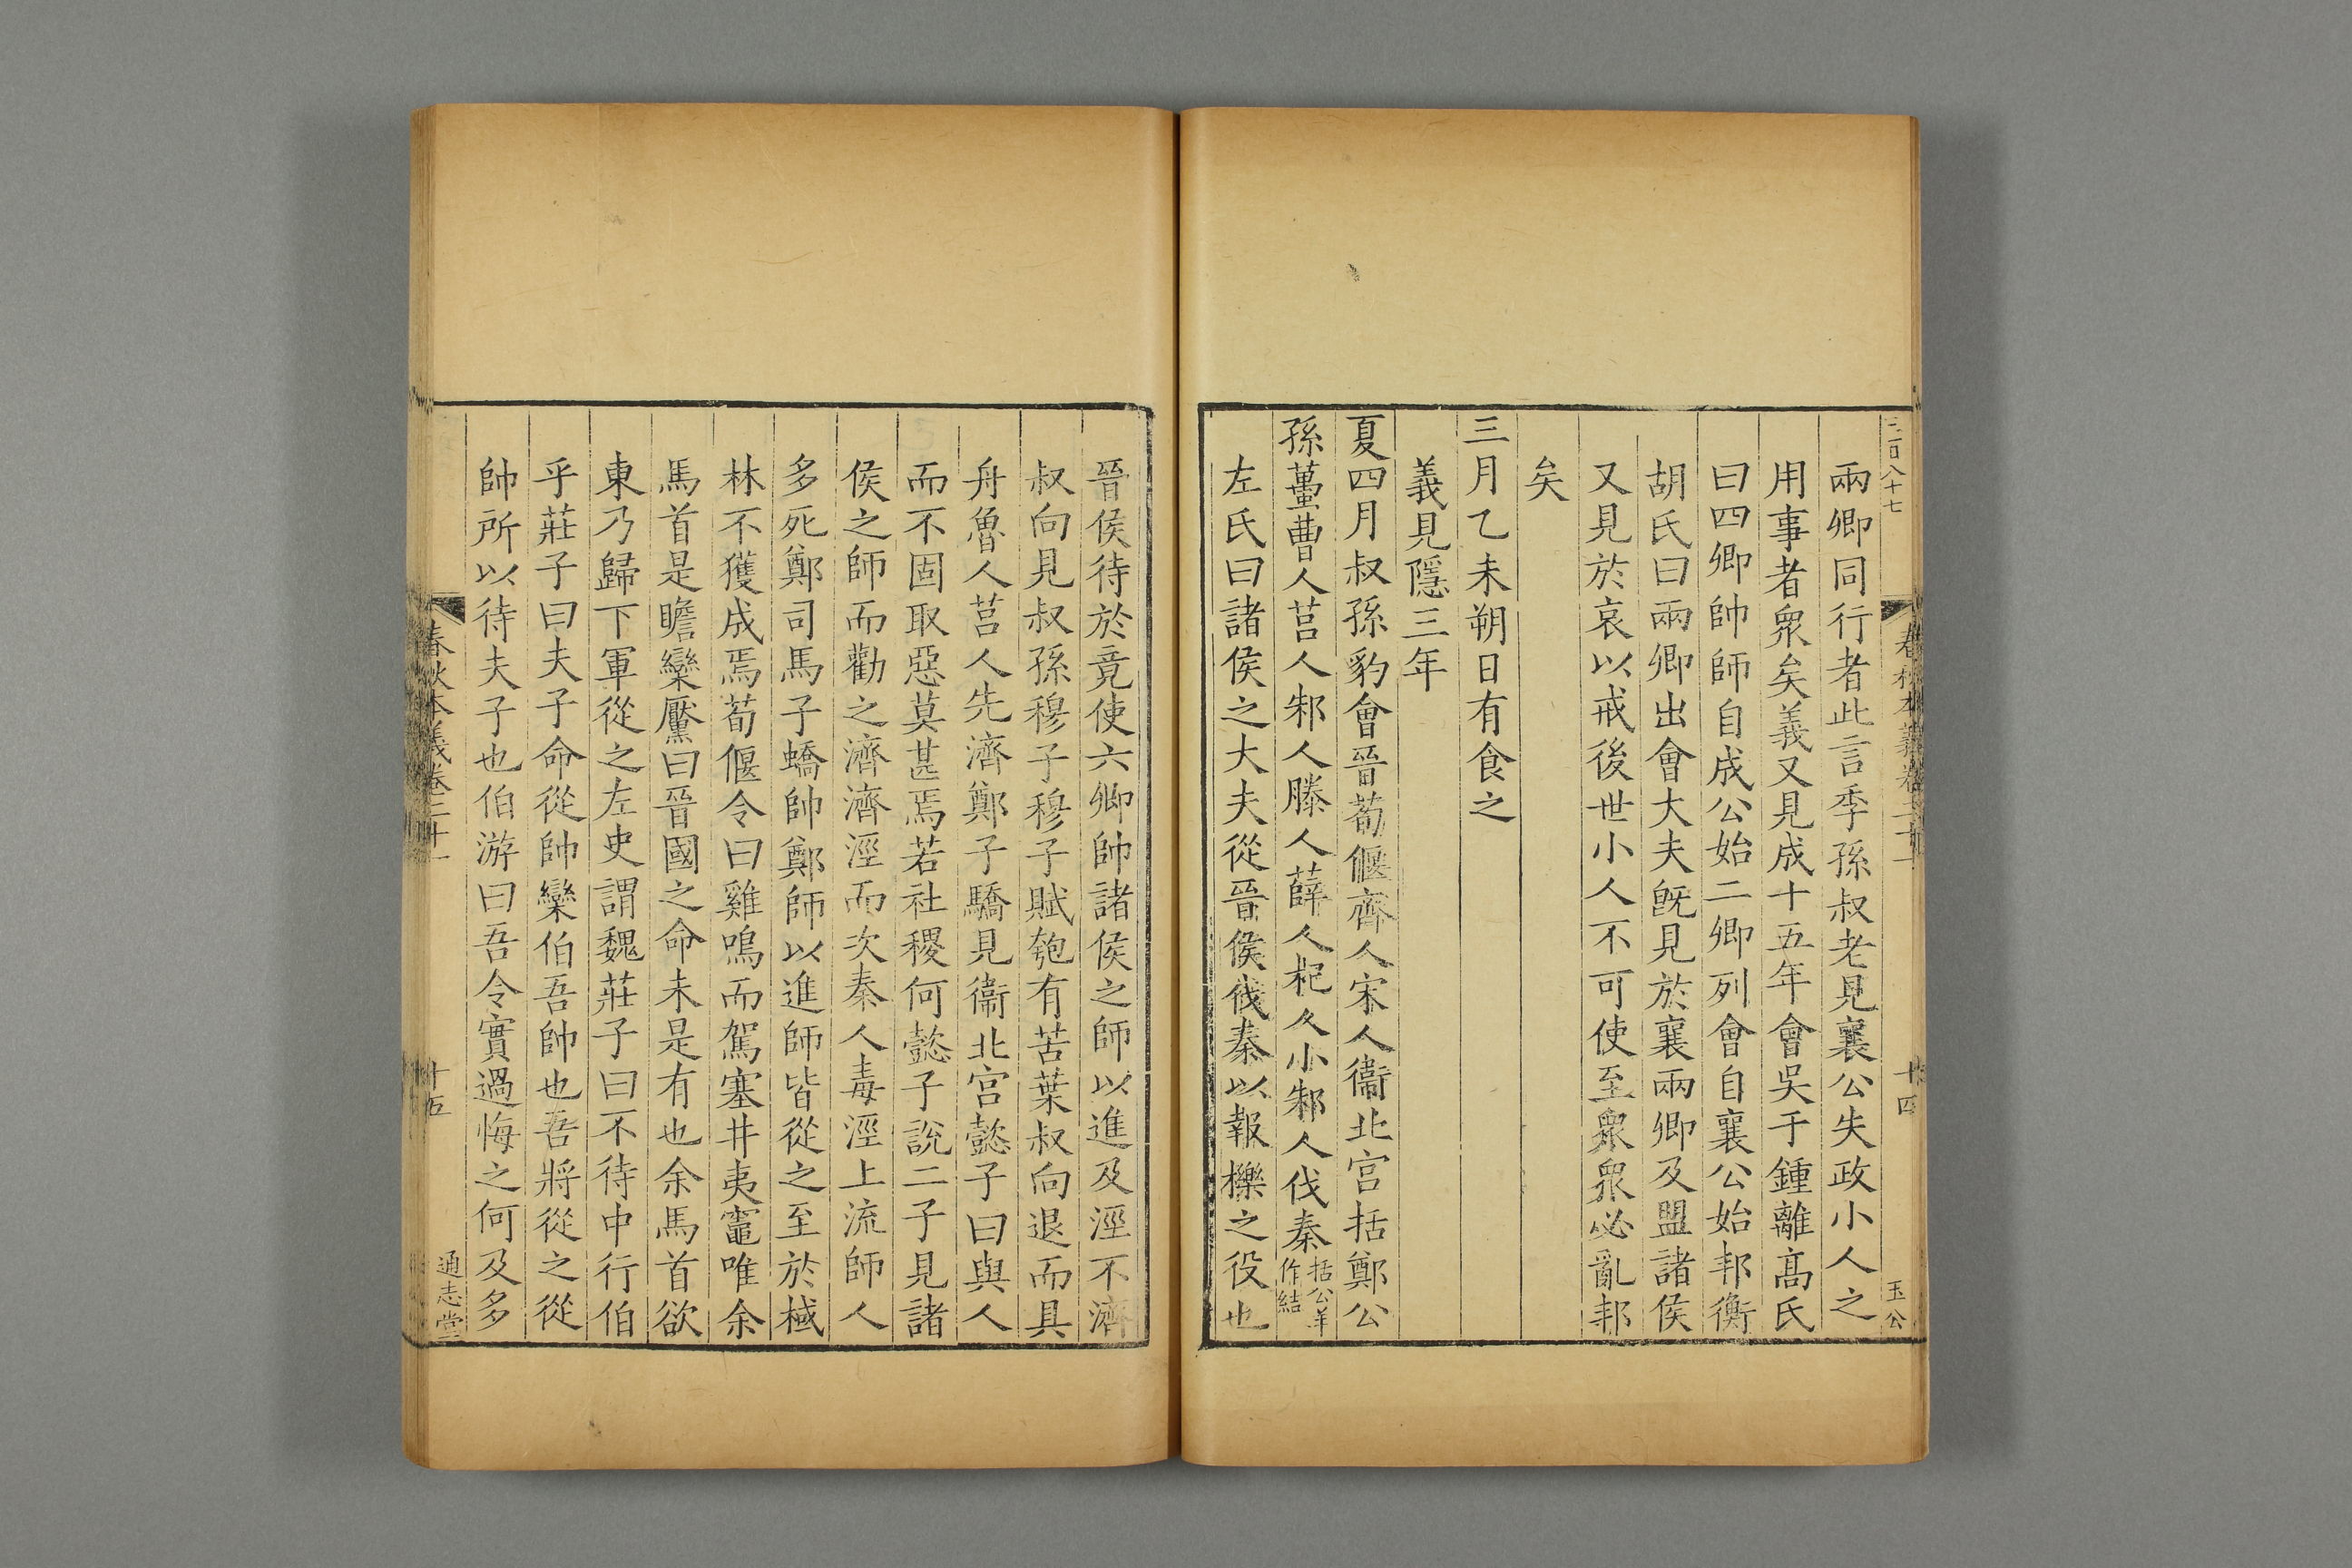 三百八十七
春秋本義卷二十一 十四 玉公
兩卿同行者此言季孫叔老見襄公失政小人之
用事者衆矣義又見成十五年會吳于鍾離高氏
曰四卿帥師自成公始二卿列會自襄公始邦衡
胡氏曰兩卿出會大夫旣見於襄兩卿及盟諸侯
又見於哀以戒後世小人不可使至衆衆必亂邦
矣
三月乙未朔日有食之
義見隱三年
夏四月叔孫豹會晉荀偃齊人宋人衞北宫括鄭公
孫蠆曹人莒人邾人滕人薛人杞人小邾人伐秦括公羊作結
左氏曰諸侯之大夫從晉侯伐秦以報櫟之役也
晉侯待於竟使六卿帥諸侯之師以進及涇不濟
叔向見叔孫穆子穆子賦匏有苦葉叔向退而具
舟魯人莒人先濟鄭子驕見衞北宫懿子曰與人
而不固取惡莫甚焉若社稷何懿子說二子見諸
侯之師而勸之濟濟涇而次秦人毒涇上流師人
多死鄭司馬子蟜帥鄭師以進師皆從之至於棫
林不獲成焉荀偃令曰雞鳴而駕塞井夷竈唯余
馬首是瞻欒黶曰晉國之命未是有也余馬首欲
東乃歸下軍從之左史謂魏莊子曰不待中行伯
乎莊子曰夫子命從帥欒伯吾帥也吾將從之從
帥所以待夫子也伯游曰吾令實過悔之何及多
春秋本義卷二十一 十五 通志堂